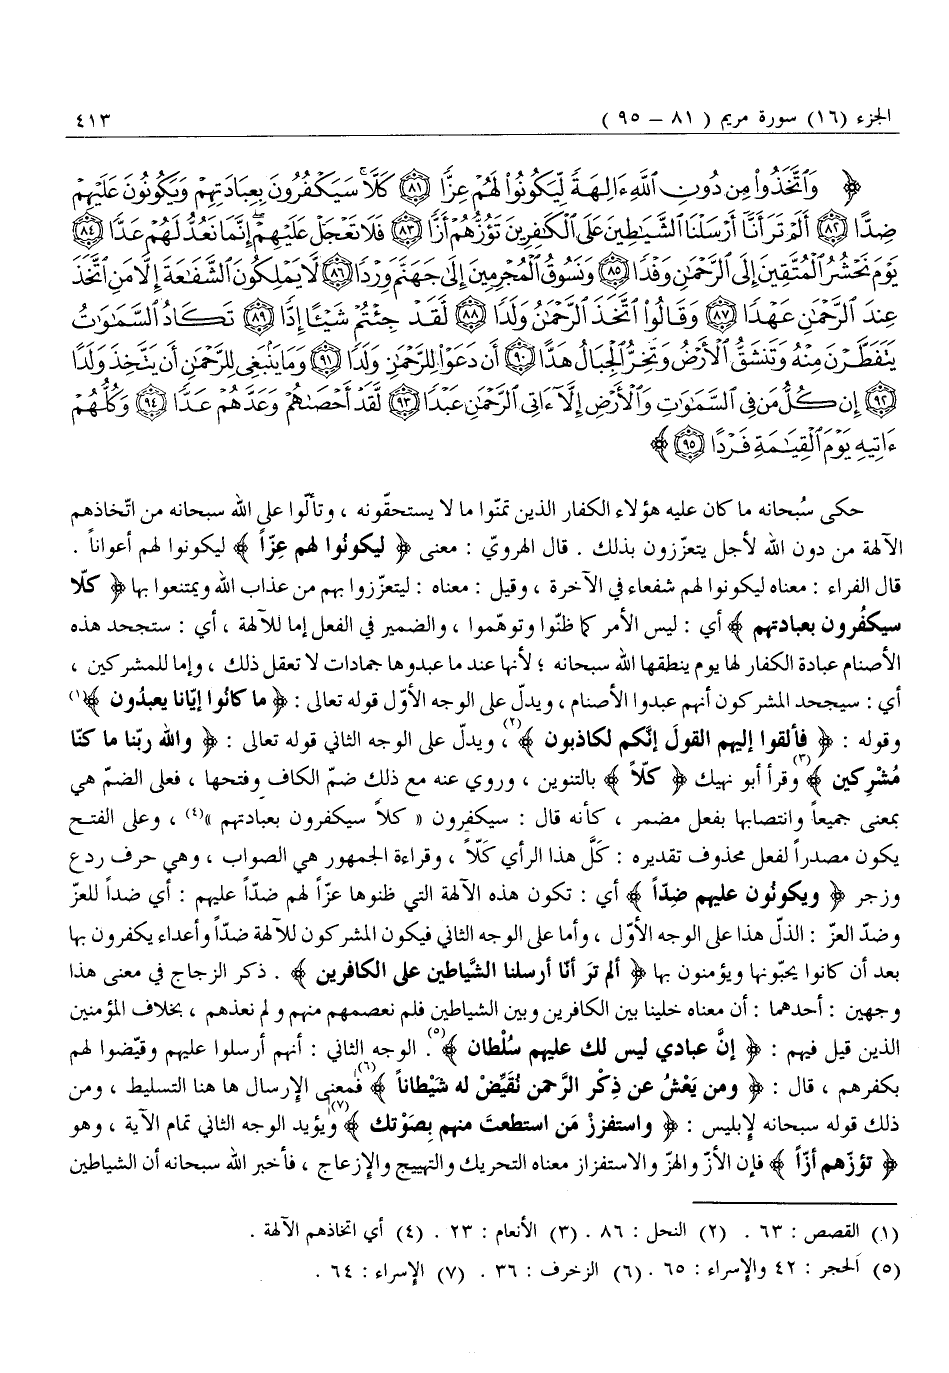 الجزء (١٦) سورة مريم ( ٨١ – ٩٥ ) ٤١٣
﴿ وَاتَّخَذُوا۟ مِن دُونِ اللَّهِ ءَالِهَةً لِّيَكُونُوا۟ لَهُمْ عِزًّا ﴿٨١﴾ كَلَّا ۚ سَيَكْفُرُونَ بِعِبَادَتِهِمْ وَيَكُونُونَ عَلَيْهِمْ
ضِدًّا ﴿٨٢﴾ أَلَمْ تَرَ أَنَّا أَرْسَلْنَا الشَّيَاطِينَ عَلَى الْكَافِرِينَ تَؤُزُّهُمْ أَزًّا ﴿٨٣﴾ فَلَا تَعْجَلْ عَلَيْهِمْ ۖ إِنَّمَا نَعُدُّ لَهُمْ عَدًّا ﴿٨٤﴾
يَوْمَ نَحْشُرُ الْمُتَّقِينَ إِلَى الرَّحْمَٰنِ وَفْدًا ﴿٨٥﴾ وَنَسُوقُ الْمُجْرِمِينَ إِلَىٰ جَهَنَّمَ وِرْدًا ﴿٨٦﴾ لَّا يَمْلِكُونَ الشَّفَاعَةَ إِلَّا مَنِ اتَّخَذَ
عِندَ الرَّحْمَٰنِ عَهْدًا ﴿٨٧﴾ وَقَالُوا۟ اتَّخَذَ الرَّحْمَٰنُ وَلَدًا ﴿٨٨﴾ لَقَدْ جِئْتُمْ شَيْـًٔا إِدًّا ﴿٨٩﴾ تَكَادُ السَّمَاوَاتُ
يَتَفَطَّرْنَ مِنْهُ وَتَنشَقُّ الْأَرْضُ وَتَخِرُّ الْجِبَالُ هَدًّا ﴿٩٠﴾ أَن دَعَوْا۟ لِلرَّحْمَٰنِ وَلَدًا ﴿٩١﴾ وَمَا يَنبَغِى لِلرَّحْمَٰنِ أَن يَتَّخِذَ وَلَدًا
﴿٩٢﴾ إِن كُلُّ مَن فِى السَّمَٰوَٰتِ وَالْأَرْضِ إِلَّا ءَاتِى الرَّحْمَٰنِ عَبْدًا ﴿٩٣﴾ لَّقَدْ أَحْصَىٰهُمْ وَعَدَّهُمْ عَدًّا ﴿٩٤﴾ وَكُلُّهُمْ
ءَاتِيهِ يَوْمَ الْقِيَٰمَةِ فَرْدًا ﴿٩٥﴾ ﴾
حكى سُبحانه ما كان عليه هؤلاء الكفار الذين تمنّوا ما لا يستحقّونه ، وتألّوا على الله سبحانه من اتّخاذهم
الآلهة من دون الله لأجل يتعزّزون بذلك . قال الهرويّ : معنى ﴿ ليكونُوا لهم عِزّاً ﴾ ليكونوا لهم أعواناً .
قال الفراء : معناه ليكونوا لهم شفعاء في الآخرة ، وقيل : معناه : ليتعزّزوا بهم من عذاب الله ويمتنعوا بها ﴿ كلّا
سيكفُرون بعبادتهم ﴾ أي : ليس الأمر كما ظنّوا وتوهّموا ، والضمير في الفعل إما للآلهة ، أي : ستجحد هذه
الأصنام عبادة الكفار لها يوم ينطقها الله سبحانه ؛ لأنها عند ما عبدوها جمادات لا تعقل ذلك ، وإما للمشركين ،
أي : سيجحد المشركون أنهم عبدوا الأصنام ، ويدلّ على الوجه الأوّل قوله تعالى : ﴿ ما كانُوا إيّانا يعبدُون ﴾(١)
وقوله : ﴿ فألقوا إليهم القولَ إنّكم لكاذبون ﴾(٢) ، ويدلّ على الوجه الثاني قوله تعالى : ﴿ والله ربّنا ما كنّا
مُشركين ﴾(٣) وقرأ أبو نهيك ﴿ كلّاً ﴾ بالتنوين ، وروي عنه مع ذلك ضمّ الكاف وفتحها ، فعلى الضمّ هي
بمعنى جميعاً وانتصابها بفعل مضمر ، كأنه قال : سيكفرون « كلاً سيكفرون بعبادتهم »(٤) ، وعلى الفتح
يكون مصدراً لفعل محذوف تقديره : كَلَّ هذا الرأي كَلّاً ، وقراءة الجمهور هي الصواب ، وهي حرف ردع
وزجر ﴿ ويكونُون عليهم ضِدّاً ﴾ أي : تكون هذه الآلهة التي ظنوها عزّاً لهم ضدّاً عليهم : أي ضداً للعزّ
وضدّ العزّ : الذلّ هذا على الوجه الأوّل ، وأما على الوجه الثاني فيكون المشركون للآلهة ضدّاً وأعداء يكفرون بها
بعد أن كانوا يحبّونها ويؤمنون بها ﴿ ألم ترَ أنّا أرسلنا الشَّياطين على الكافرين ﴾ . ذكر الزجاج في معنى هذا
وجهين : أحدهما : أن معناه خلينا بين الكافرين وبين الشياطين فلم نعصمهم منهم ولم نعذهم ، بخلاف المؤمنين
الذين قيل فيهم : ﴿ إنَّ عبادي ليس لك عليهم سُلْطان ﴾(٥). الوجه الثاني : أنهم أرسلوا عليهم وقيّضوا لهم
بكفرهم ، قال : ﴿ ومن يَعْشُ عن ذِكْر الرَّحمن نُقَيِّضْ له شيْطاناً ﴾(٦) فمعنى الإرسال ها هنا التسليط ، ومن
ذلك قوله سبحانه لإبليس : ﴿ واستفززْ مَن استطعتَ منهم بِصَوْتك ﴾(٧) ويؤيد الوجه الثاني تمام الآية ، وهو
﴿ تؤزّهم أزّاً ﴾ فإن الأزّ والهزّ والاستفزاز معناه التحريك والتهييج والإزعاج ، فأخبر الله سبحانه أن الشياطين
(١) القصص : ٦٣ . (٢) النحل : ٨٦ . (٣) الأنعام : ٢٣ . (٤) أي اتخاذهم الآلهة .
(٥) الحجر : ٤٢ والإسراء : ٦٥ . (٦) الزخرف : ٣٦ . (٧) الإسراء : ٦٤ .